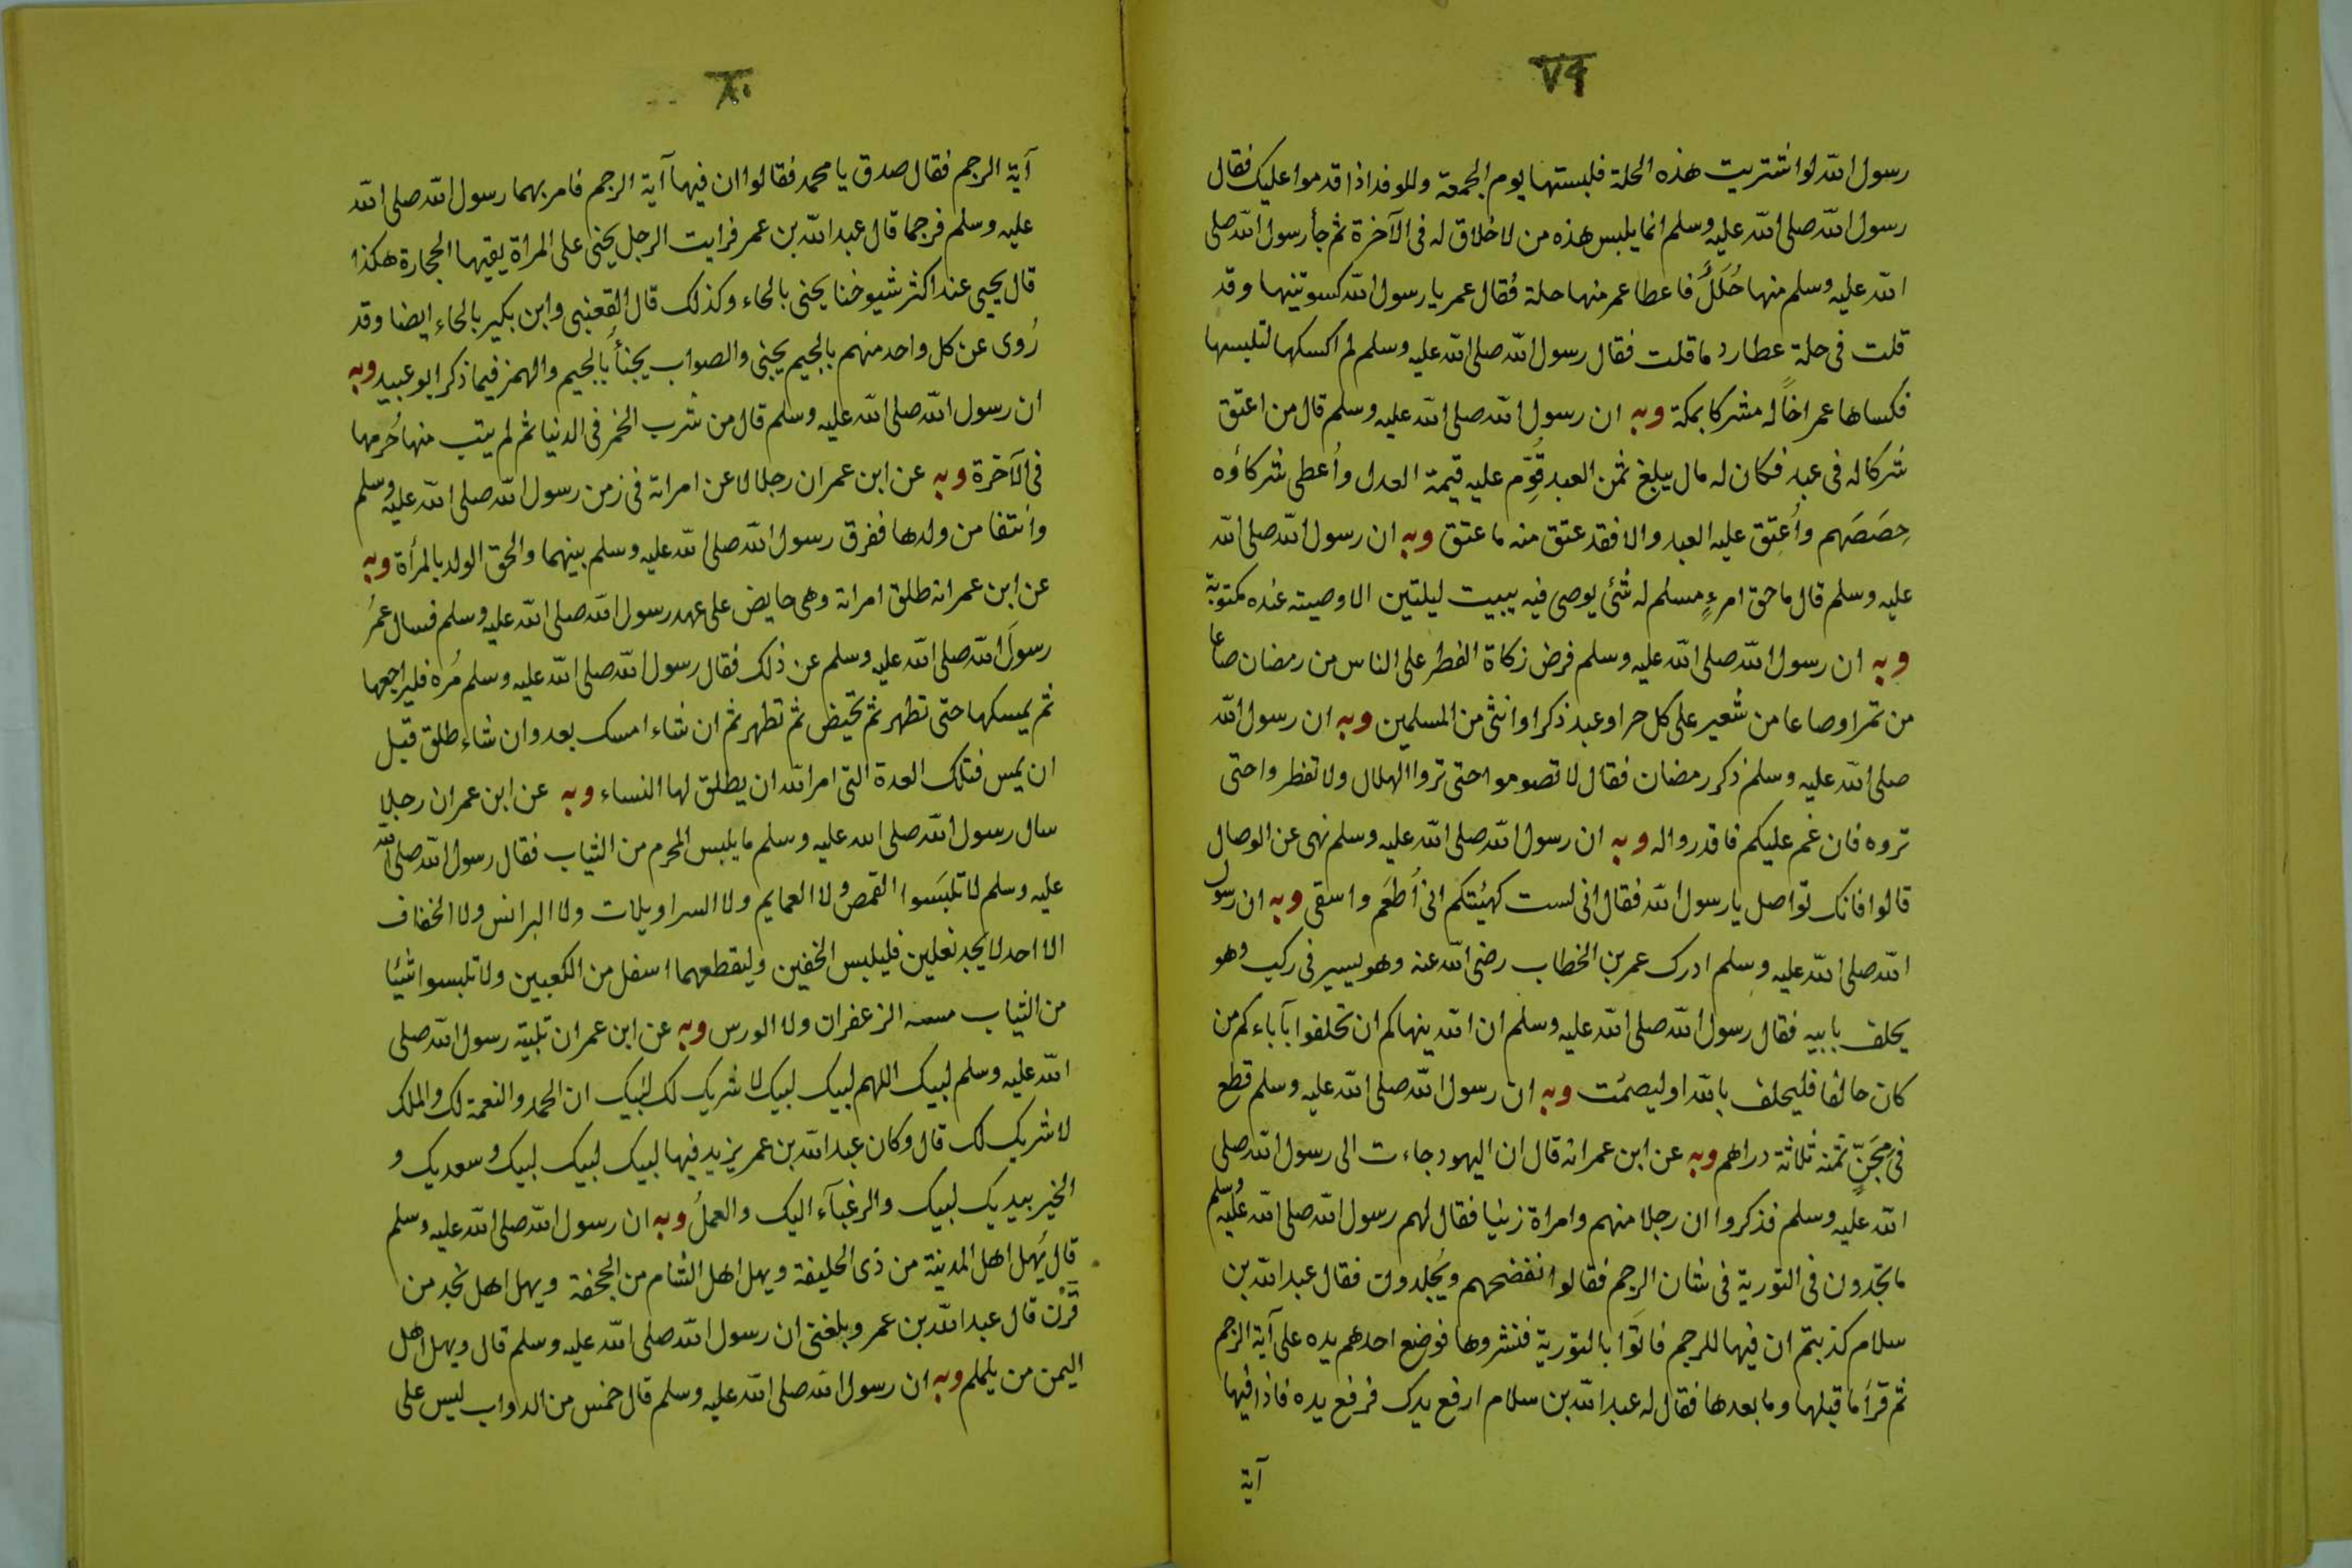 ٧٩
رسول الله لو اشتريت هذه الحلة فلبستها يوم الجمعة وللوفد اذا قدموا عليك فقال
رسول الله صلى الله عليه وسلم انما يلبس هذه من لا خلاق له فى الآخرة ثم جأ رسول الله صلى
الله عليه وسلم منها حُلَلٌ فاعطا عمر منها حلة فقال عمر يا رسول الله كسوتنيها وقد
قلت فى حلة عطارد ما قلت فقال رسول الله صلى الله عليه وسلم لم اكسكها لتلبسها
فكساها عمر اخاً له مشركا بمكة وبه ان رسول الله صلى الله عليه وسلم قال من اعتق
شركا له فى عبد فكان له مال يبلغ ثمن العبد قُوِّم عليه قيمة العدل وأُعطى شركاؤه
حِصَصَهم وأُعتِق عليه العبد والا فقد عتق منه ما عتق وبه ان رسول الله صلى الله
عليه وسلم قال ما حق امرءٍ مسلم له شئ يوصى فيه يبيت ليلتين الا وصيته عنده مكتوبة
وبه ان رسول الله صلى الله عليه وسلم فرض زكاة الفطر على الناس من رمضان صاعا
من تمر او صاعا من شعير على كل حر او عبد ذكر او انثى من المسلمين وبه ان رسول الله
صلى الله عليه وسلم ذكر رمضان فقال لا تصوموا حتى تروا الهلال ولا تفطروا حتى
تروه فان غم عليكم فاقدروا له وبه ان رسول الله صلى الله عليه وسلم نهى عن الوصال
قالوا فانك تواصل يا رسول الله فقال انى لست كهيئتكم انى أُطعَم واسقى وبه ان رسول
الله صلى الله عليه وسلم ادرك عمر بن الخطاب رضى الله عنه وهو يسير فى ركب وهو
يحلف بابيه فقال رسول الله صلى الله عليه وسلم ان الله ينهاكم ان تحلفوا بآباءكم من
كان حالفا فليحلف بالله او ليصمت وبه ان رسول الله صلى الله عليه وسلم قطع
فى مِجَنٍّ ثمنه ثلاثة دراهم وبه عن ابن عمر انه قال ان اليهود جاءت الى رسول الله صلى
الله عليه وسلم فذكروا ان رجلا منهم وامراة زنيا فقال لهم رسول الله صلى الله عليه وسلم
ما تجدون فى التورية فى شان الرجم فقالوا نفضحهم ويُجلدون فقال عبد الله بن
سلام كذبتم ان فيها للرجم فاتَوا بالتورية فنشروها فوضع احدهم يده على آية الرجم
ثم قرأ ما قبلها وما بعدها فقال له عبد الله بن سلام ارفع يدك فرفع يده فاذا فيها
آية
٨٠
آية الرجم فقال صدق يا محمد فقالوا ان فيها آية الرجم فامر بهما رسول الله صلى الله
عليه وسلم فرجما قال عبد الله بن عمر فرايت الرجل يحنى على المراة يقيها الحجارة هكذا
قال يحيى عند اكثر شيوخنا يحنى بالحاء وكذلك قال القعنبى وابن بكير بالحاء ايضا وقد
رُوى عن كل واحد منهم بالجيم يجنى والصواب يجنأ بالجيم والهمز فيما ذكر ابو عبيد وبه
ان رسول الله صلى الله عليه وسلم قال من شرب الخمر فى الدنيا ثم لم يتب منها حُرمها
فى الآخرة وبه عن ابن عمر ان رجلا لاعن امراته فى زمن رسول الله صلى الله عليه وسلم
وانتفا من ولدها ففرق رسول الله صلى الله عليه وسلم بينهما والحق الولد بالمرأة وبه
عن ابن عمر انه طلق امراته وهى حايض على عهد رسول الله صلى الله عليه وسلم فسال عمرُ
رسولَ الله صلى الله عليه وسلم عن ذلك فقال رسول الله صلى الله عليه وسلم مُره فليراجعها
ثم يمسكها حتى تطهر ثم تحيض ثم تطهر ثم ان شاء امسك بعد وان شاء طلق قبل
ان يمس فتلك العدة التى امر الله ان يطلق لها النساء وبه عن ابن عمر ان رجلا
سال رسول الله صلى الله عليه وسلم ما يلبس المحرم من الثياب فقال رسول الله صلى الله
عليه وسلم لا تلبَسوا القمص ولا العمايم ولا السراويلات ولا البرانس ولا الخفاف
الا احد لا يجد نعلين فليلبس الخفين وليقطعهما اسفل من الكعبين ولا تلبسوا شيئا
من الثياب مسه الزعفران ولا الورس وبه عن ابن عمر ان تلبية رسول الله صلى
الله عليه وسلم لبيك اللهم لبيك لبيك لا شريك لك لبيك ان الحمد والنعمة لك والملك
لا شريك لك قال وكان عبد الله بن عمر يزيد فيها لبيك لبيك لبيك وسعديك و
الخير بيديك لبيك والرغبآء اليك والعملُ وبه ان رسول الله صلى الله عليه وسلم
قال يُهل اهل المدينة من ذى الحليفة ويهل اهل الشام من الجحفة ويهل اهل نجد من
قَرْن قال عبد الله بن عمر وبلغنى ان رسول الله صلى الله عليه وسلم قال ويهل اهل
اليمن من يلملم وبه ان رسول الله صلى الله عليه وسلم قال خمس من الدواب ليس على